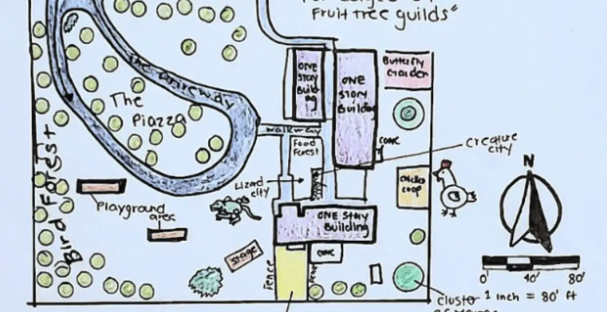 Fruit tree guilds"
Butterfly
Garden
ONE
Story
Build-
ing
ONE
Story
Building
The Driveway
The
Piazza
walkway
Food
Forest
conc
creature
city
Lizard
city
Chicken
coop
N
Bird Forest
Playground
area
ONE Story
Building
Storage
conc
Fence
0 40' 80'
1 inch = 80' ft